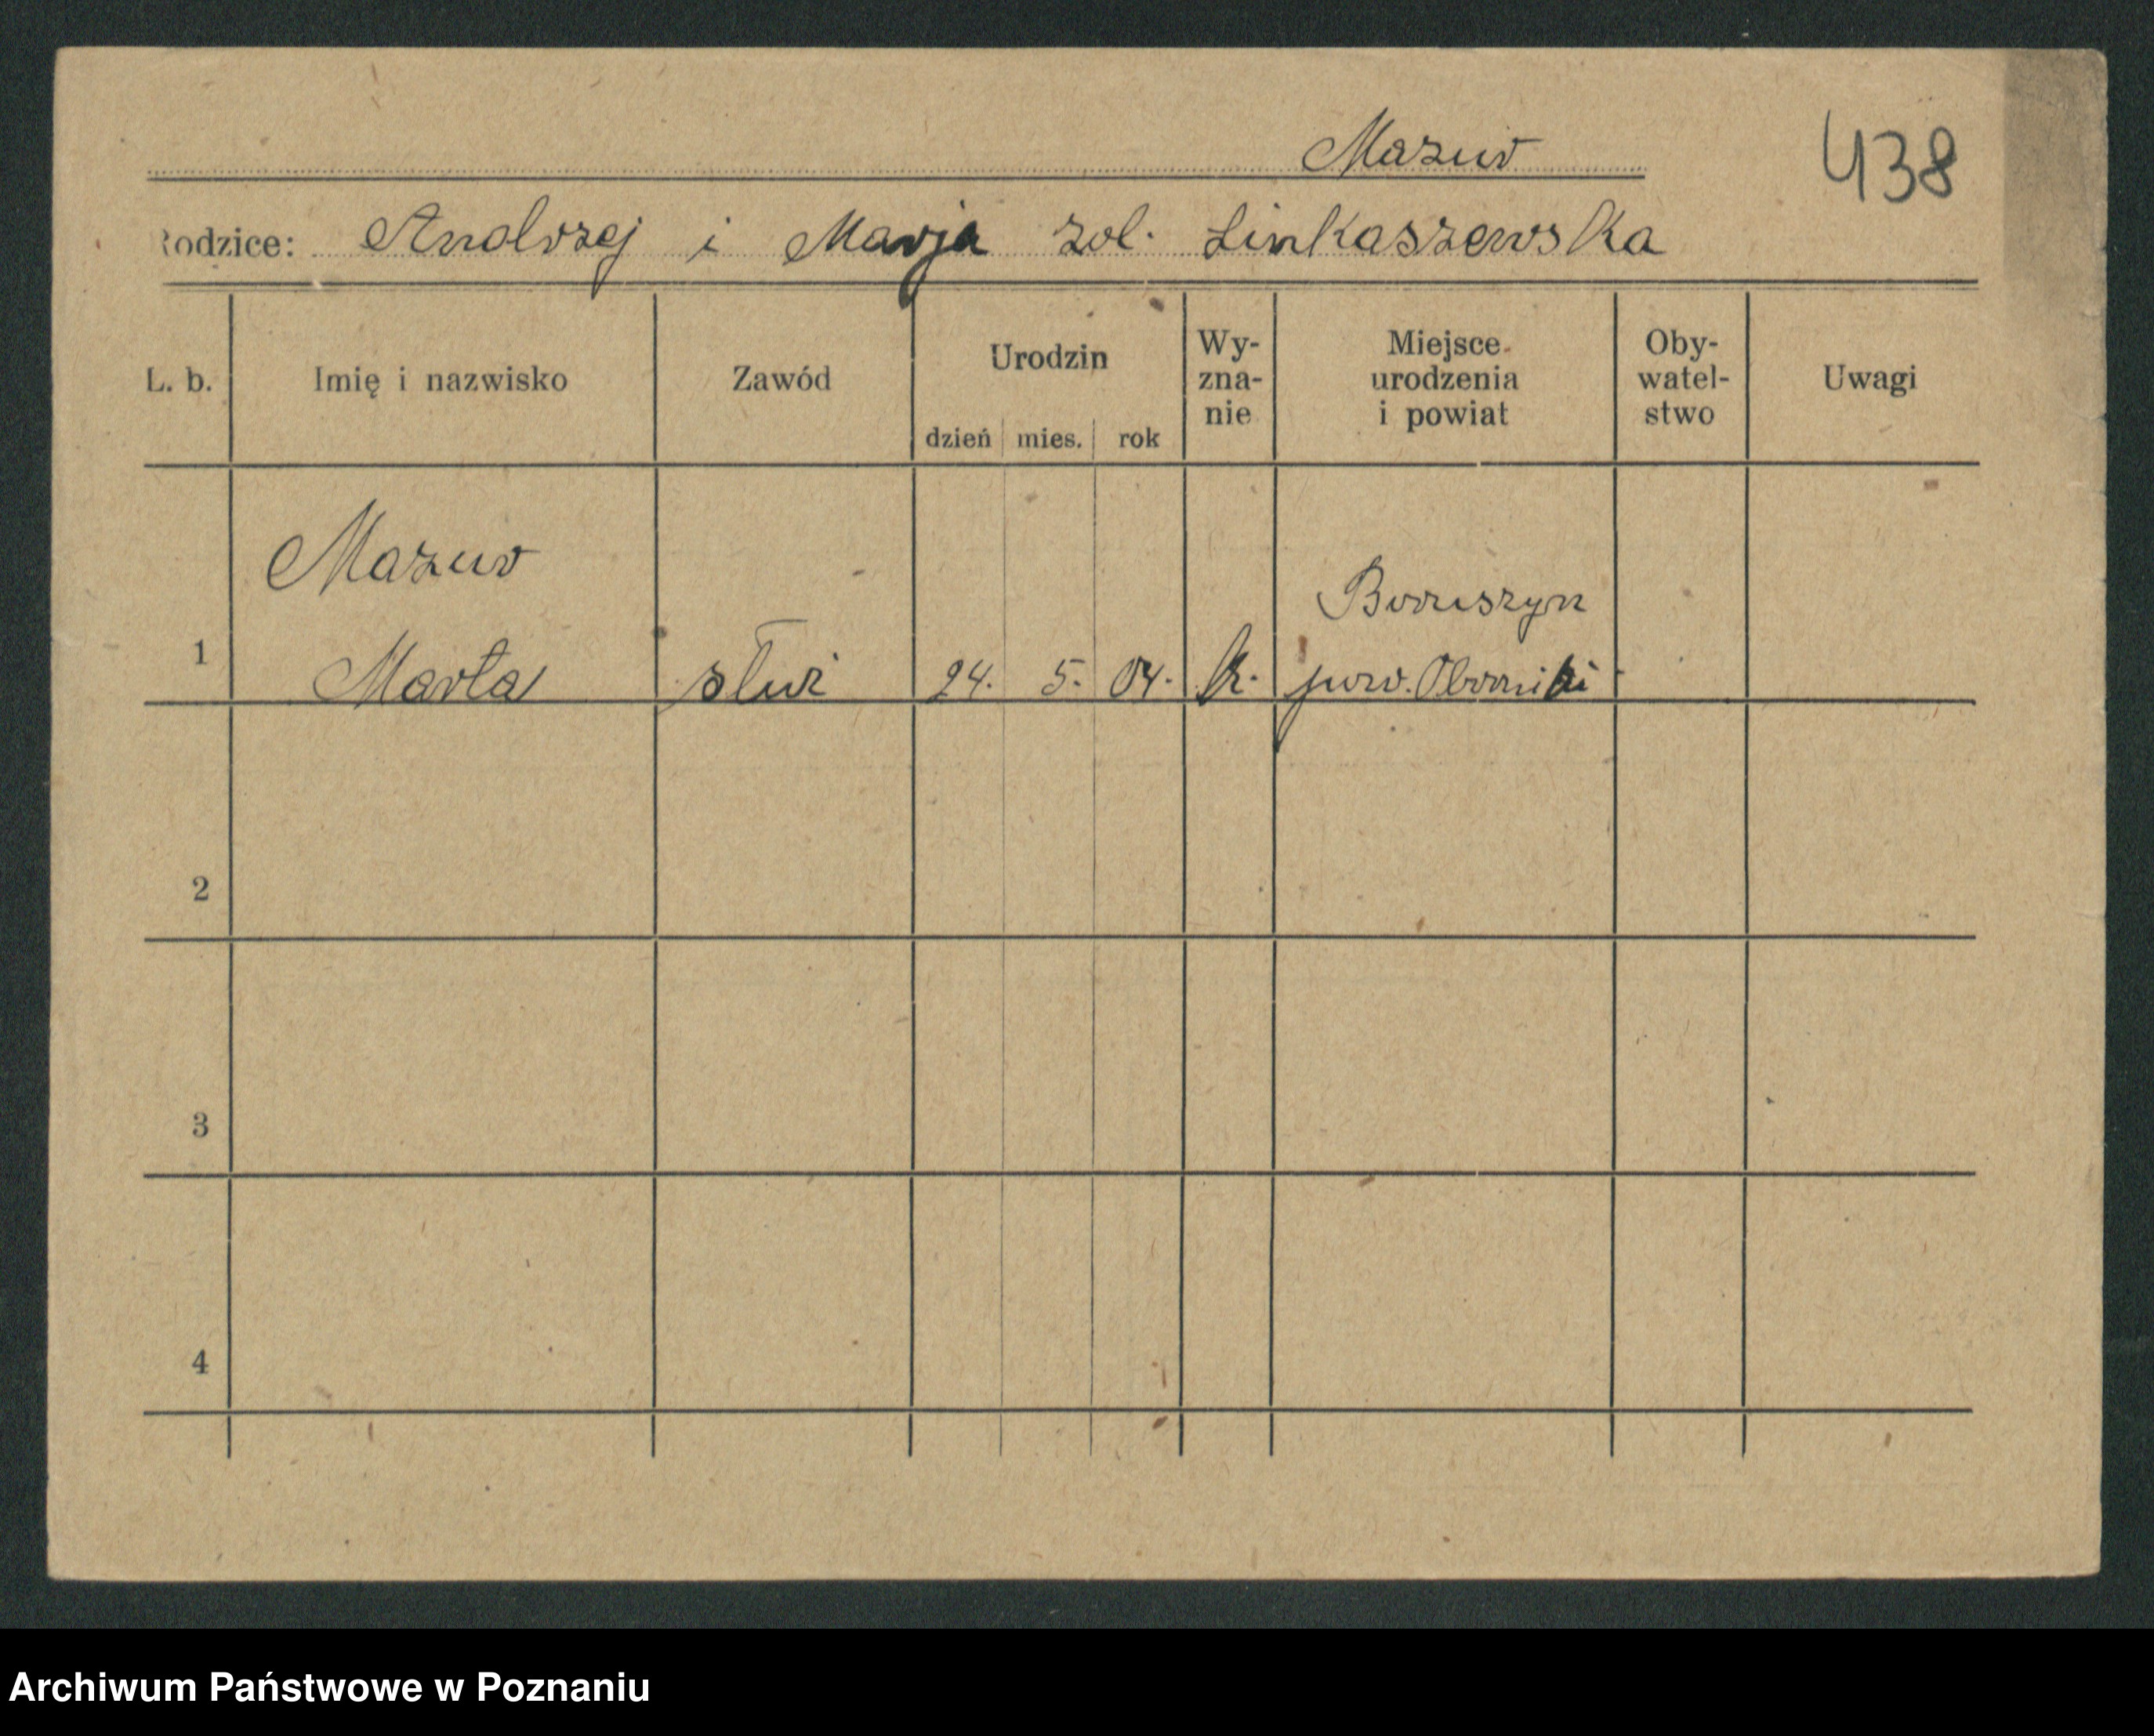 Mazur 438
Rodzice: Andrzej i Marja zol. Linkaszewska
L. b. Imię i nazwisko Zawód Urodzin dzień mies. rok Wy-zna-nie Miejsce urodzenia i powiat Oby-watel-stwo Uwagi
Mazur Boruszyn
1 Marta służ 24. 5. 04. k. pow. Oborniki
2
3
4
Archiwum Państwowe w Poznaniu